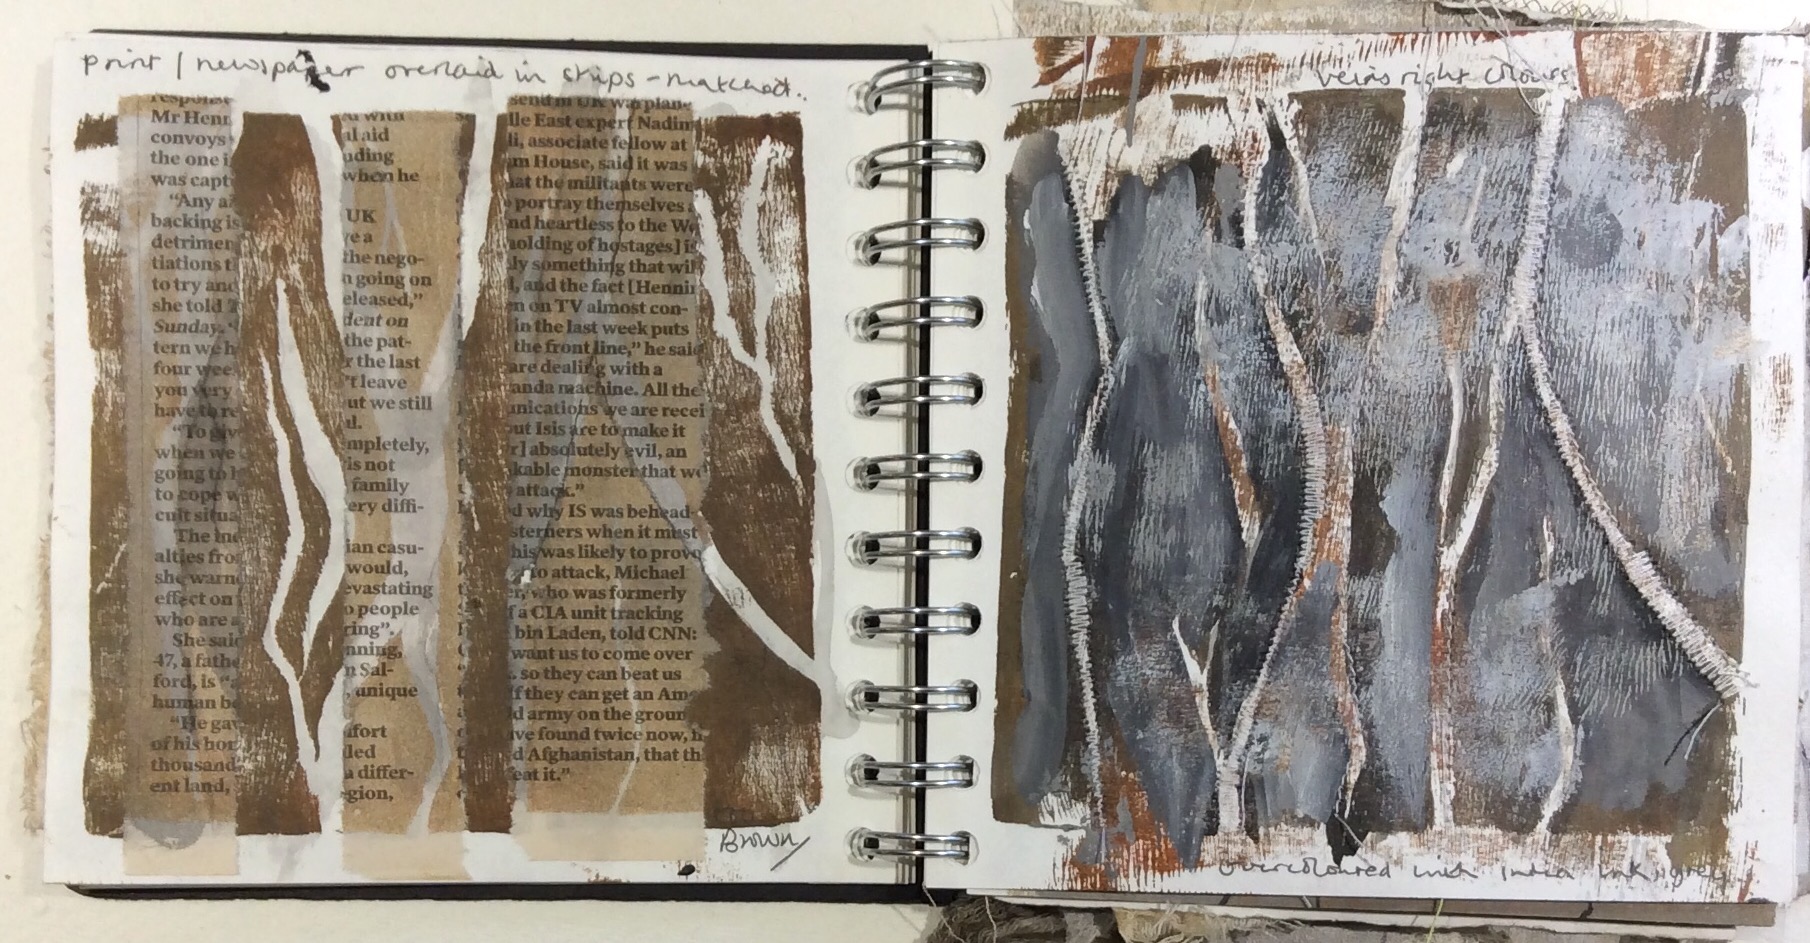 print / newspaper overlaid in strips - matchot.
respons
Mr Henn
convoys
the one i
was capt
"Any a
backing is
detrimen
tiations t
to try and
she told T
Sunday. "
tern we h
four wee
you very
have to re
"To give
when we
going to h
to cope w
cult situa
The ind
alties fro
she warn
effect on
who are a
She said
47, a fathe
ford, is "a
human be
"He gav
of his hor
thousand
ent land,
d with
al aid
uding
when he
UK
ve a
the nego-
n going on
eleased,"
dent on
the pat-
r the last
't leave
ut we still
d.
mpletely,
is not
family
ery diffi-
ian casu-
would,
evastating
o people
ring".
nning,
n Sal-
, unique
fort
led
a differ-
gion,
send in UK warplan-
lle East expert Nadim
li, associate fellow at
m House, said it was
hat the militants were
portray themselves a
nd heartless to the We
holding of hostages] is
ly something that wil
l, and the fact [Hennin
n on TV almost con-
in the last week puts
the front line," he said
are dealing with a
anda machine. All the
unications we are recei
out Isis are to make it
r] absolutely evil, an
kable monster that we
attack."
d why IS was behead-
sterners when it must
his was likely to provo
to attack, Michael
er, who was formerly
f a CIA unit tracking
bin Laden, told CNN:
want us to come over
. so they can beat us
If they can get an Ame
d army on the groun
ive found twice now, h
d Afghanistan, that th
eat it."
Brown
veins right colours
overcoloured with India ink, grey